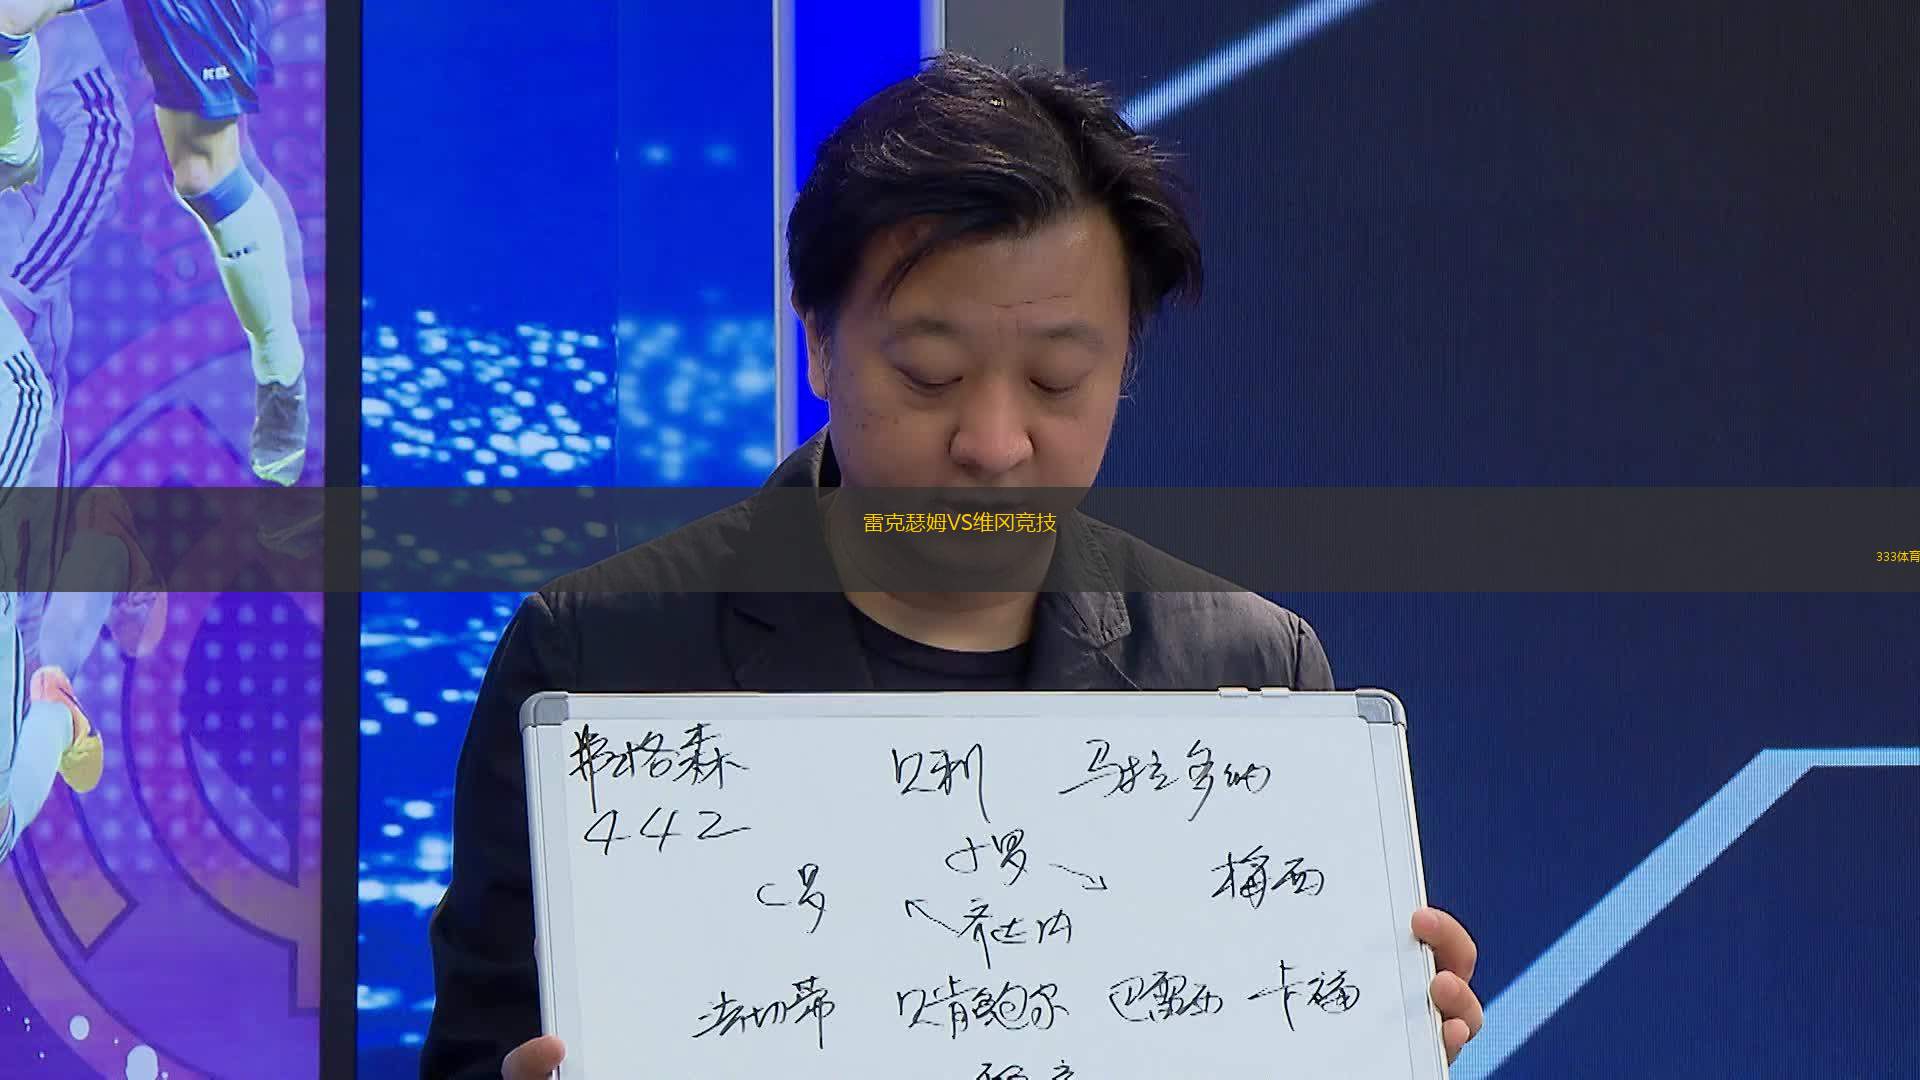 雷克瑟姆VS维冈竞技
333体育
弗格森 贝利 马拉多纳
442
小罗
C罗 梅西
齐达内
法切蒂 贝肯鲍尔 巴雷西 卡福